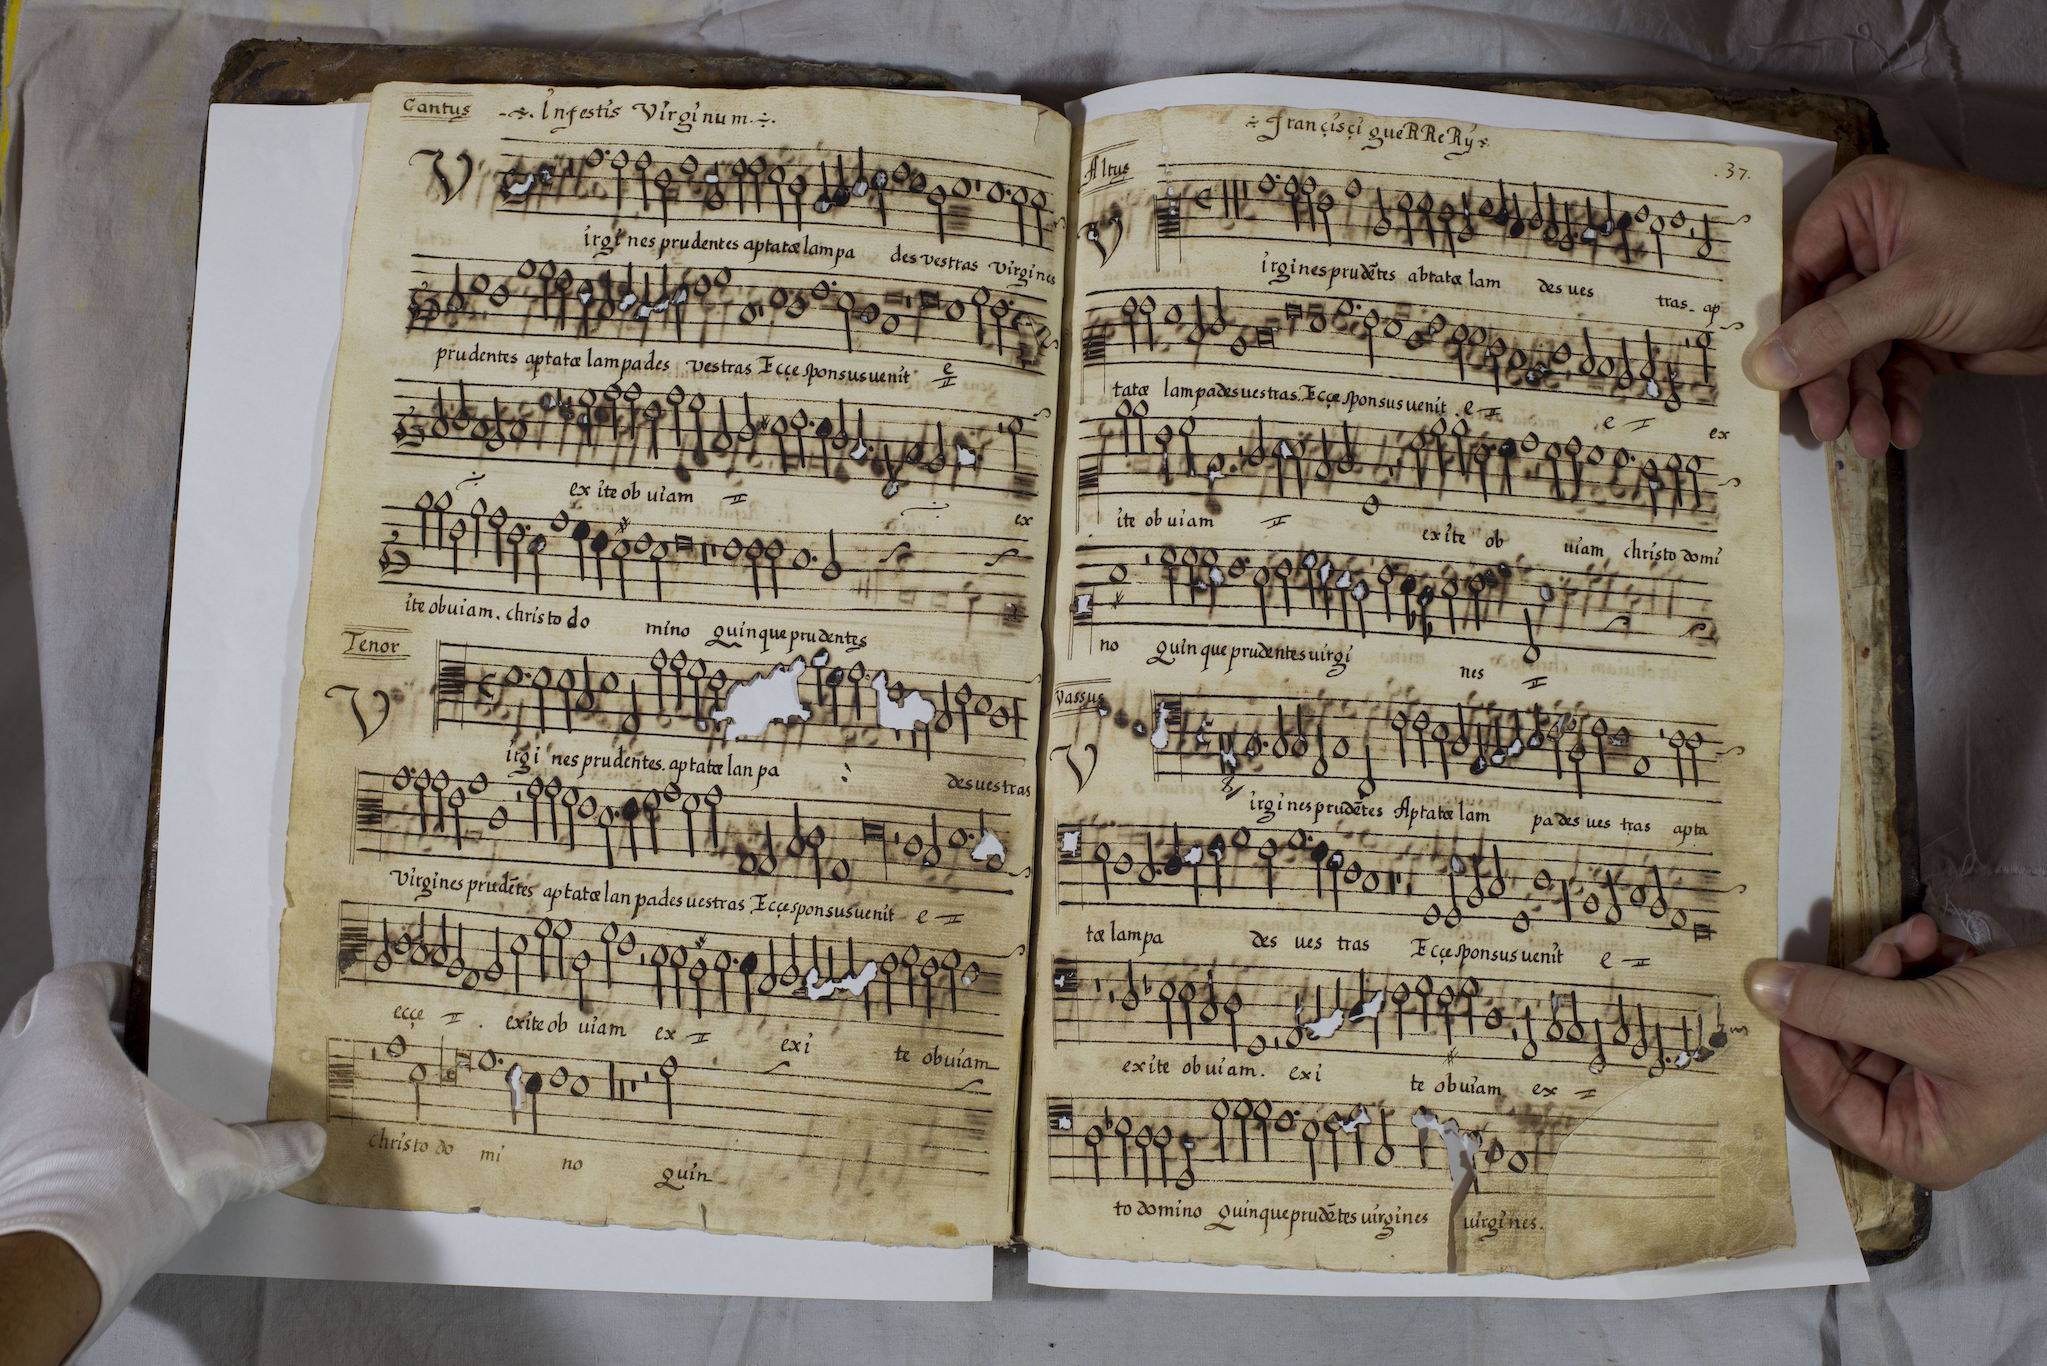 Cantus
Infestis Virginum
V
irgi nes prudentes aptatæ lampa des vestras virgines
prudentes aptatæ lampades vestras Ecçe sponsus uenit e
ex ite ob uiam ex
ite obuiam. christo do mino quinque prudentes
Tenor
V
irgi nes prudentes. aptatæ lan pa des uestras
Virgines prudẽtes aptatæ lan pades uestras Ecçe sponsus uenit e
ecçe . exite ob uiam ex exi te obuiam
christo do mi no quin
Françisçi gueRReRy
.37.
Altus
V
irgines prudẽtes abtatæ lam des ues tras. ap
tatæ lampades uestras. Ecçe sponsus uenit . e e ex
ite ob uiam exite ob uiam christo domi
no quin que prudentes uirgi nes
Vassus
V
irgi nes prudẽtes Aptatæ lam pa des ues tras apta
tæ lampa des ues tras Ecçe sponsus uenit e
exite obuiam. exi te obuiam ex
to domino quinque prudẽtes uirgines uirgines.